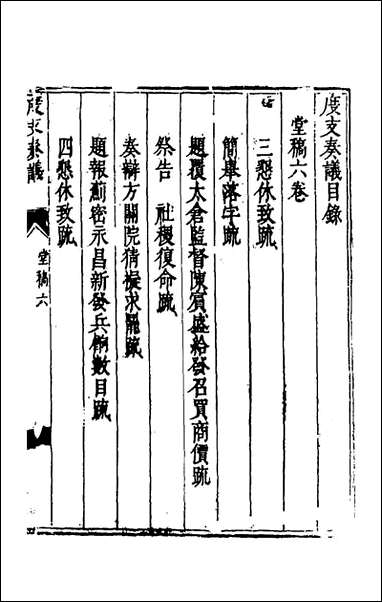 度支奏議目錄
堂稿六卷
三懇休致疏
簡舉落字疏
題覆太倉監督陳賔盛給發召買商價疏
祭告 社稷復命疏
奏辯方關院猜擬求罷疏
題報薊密永昌新發兵餉數目疏
四懇休致疏
度支奏議
堂稿六